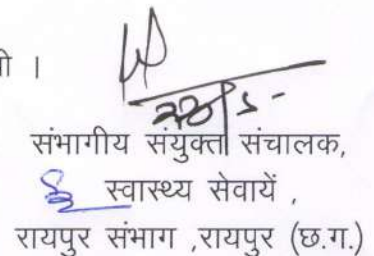 ।
संभागीय संयुक्त संचालक,
स्वास्थ्य सेवायें ,
रायपुर संभाग ,रायपुर (छ.ग.)